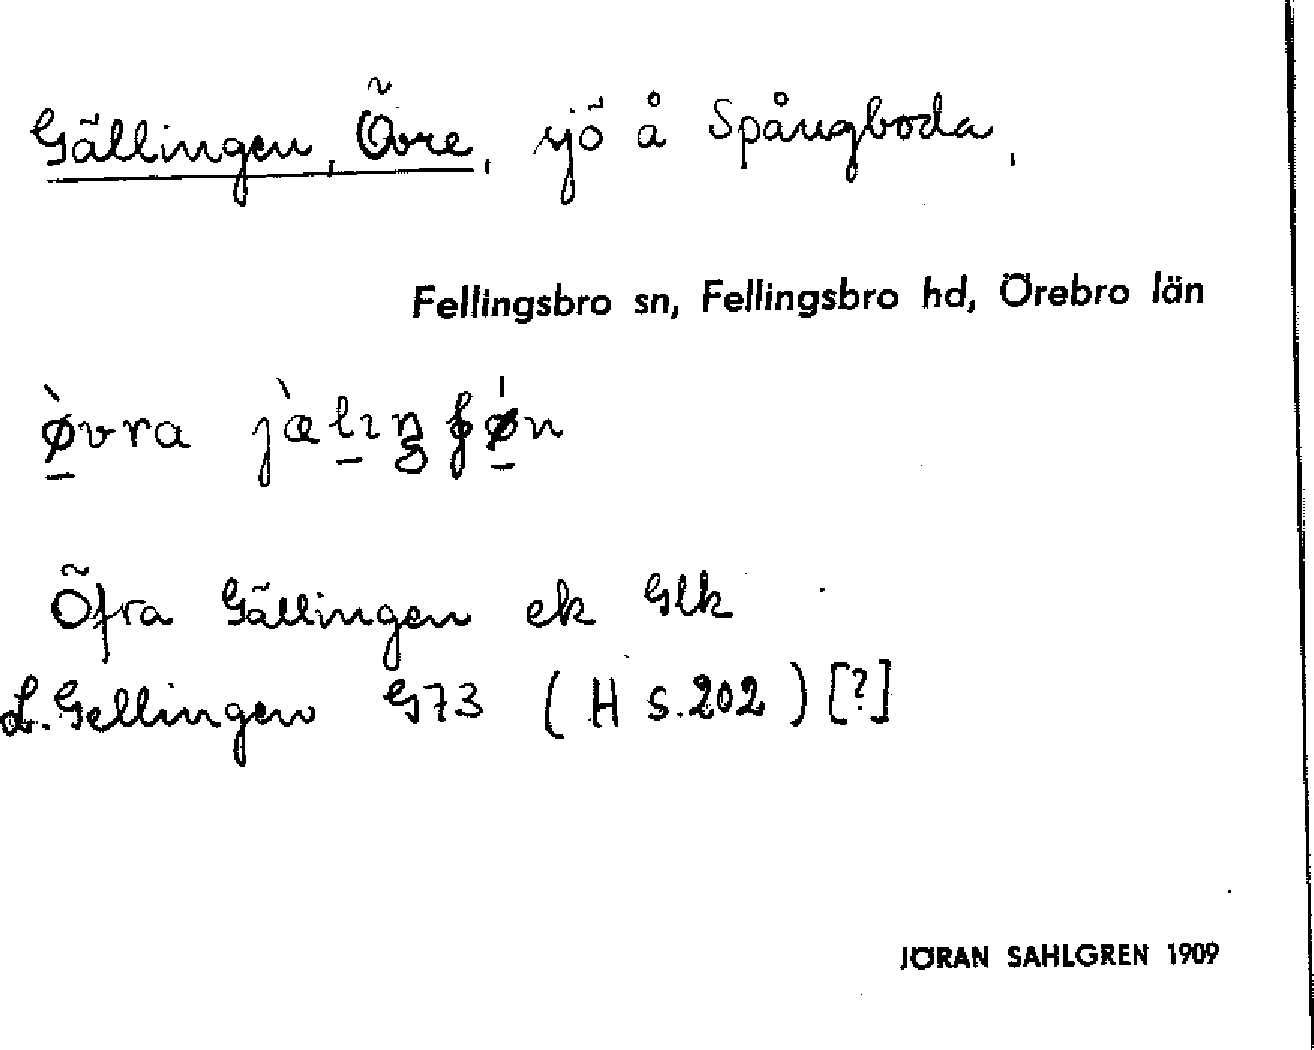 Gällingen, Övre, sjö å Spångboda,
Fellingsbro sn, Fellingsbro hd, Örebro län
ø̀vra jæ̀lıŋʃøn
Öfra Gällingen ek Glk
L. Gellingen G73 (H s.202) [?]
JÖRAN SAHLGREN 1909